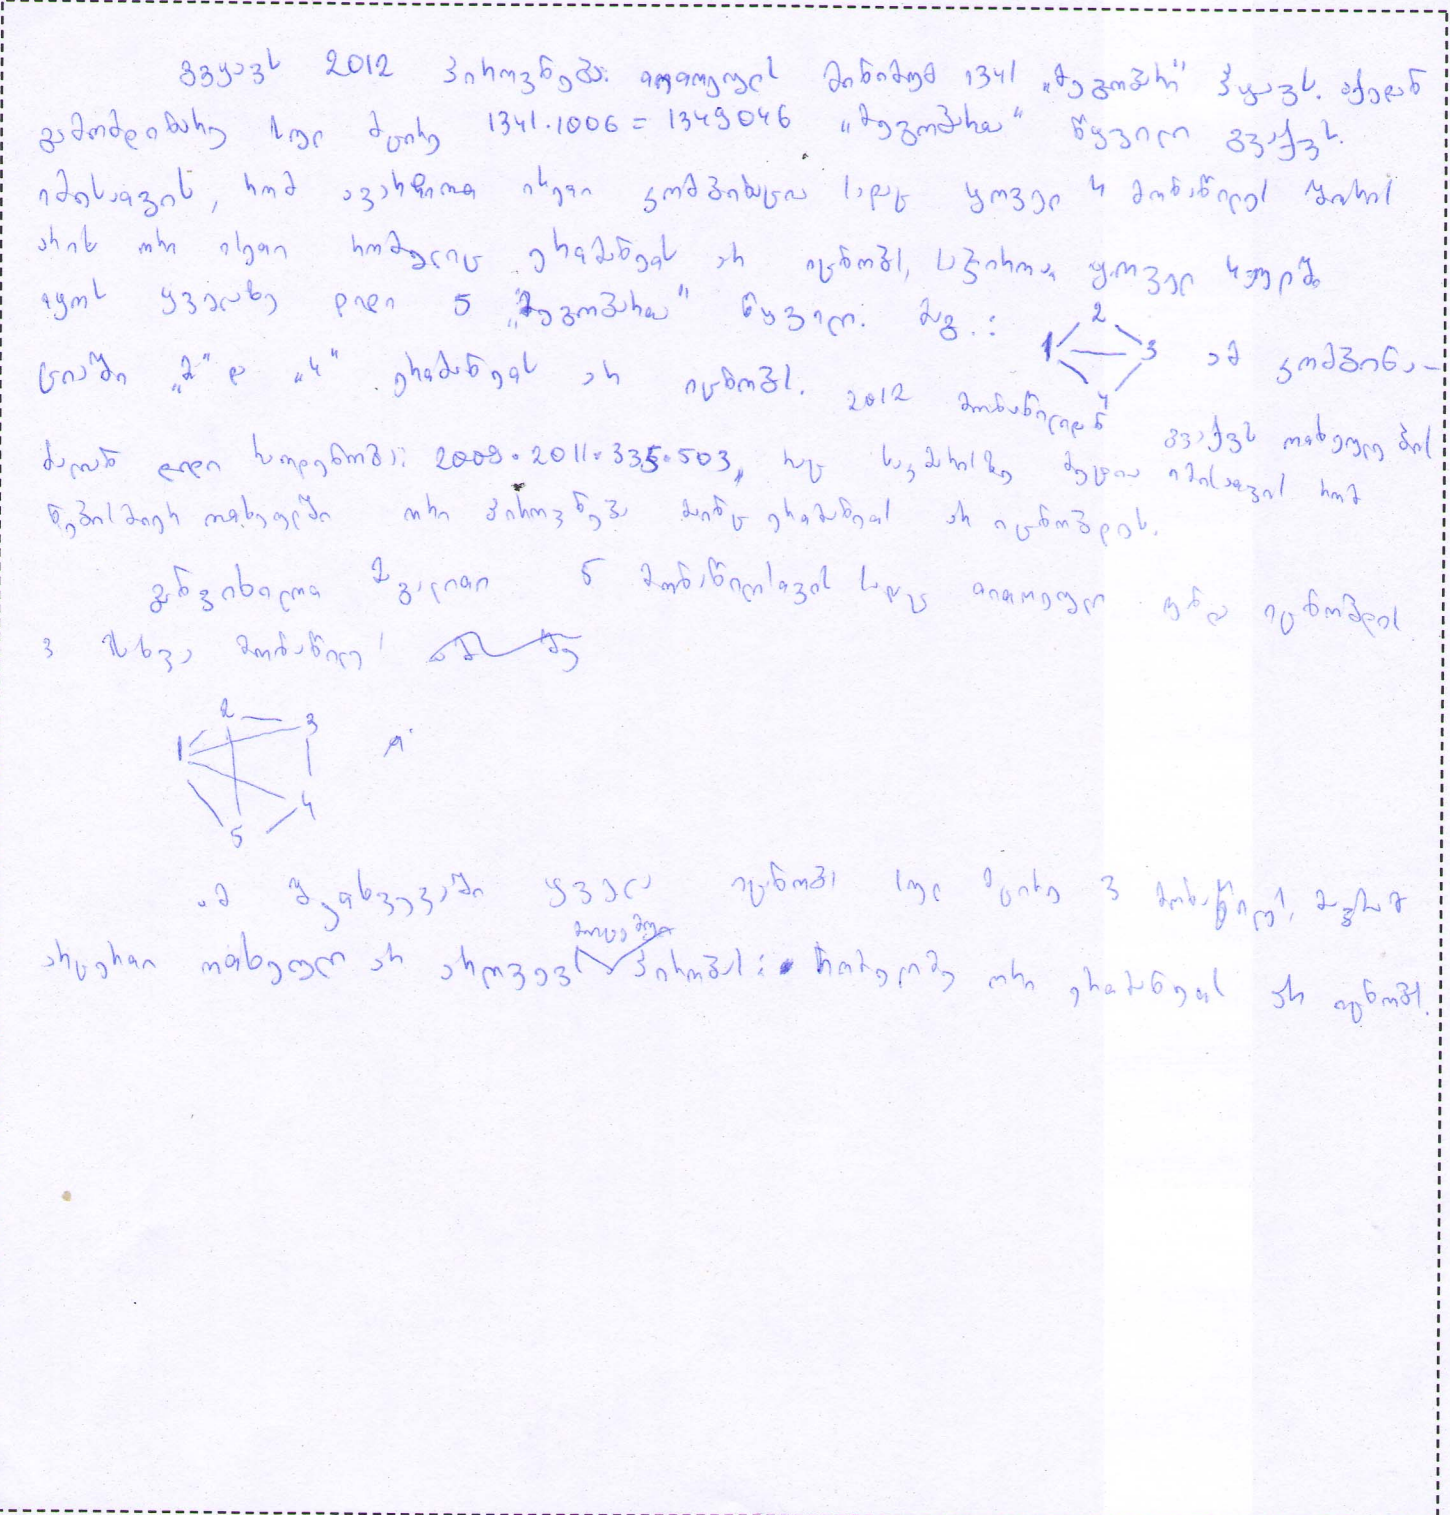 გვყავს 2012 პიროვნება. თითოეულს მინიმუმ 1341 „მეგობარი" ჰყავს. აქედან
გამომდინარე სულ მცირე 1341·1006 = 1349046 „მეგობართა" წყვილი გვაქვს.
იმისათვის, რომ ავარჩიოთ ისეთი კომბინაცია სადაც ყოველ 4 მონაწილეს შორის
არის ორი ისეთი რომელიც ერთმანეთს არ იცნობს, საჭიროა ყოველ 4-ეულში
იყოს ყველაზე დიდი 5 „მეგობართა" წყვილი. მაგ.: 1 2 3 4 ამ კომბინა-
ციაში „2" და „4" ერთმანეთს არ იცნობს. 2012 მონაწილიდან გვაქვს ოთხეულების
ძალიან დიდი რაოდენობა: 2009·2011·335·503, რაც საკმარისზე მეტია იმისათვის რომ
ნებისმიერ ოთხეულში ორი პიროვნება მაინც ერთმანეთს არ იცნობდეს.
განვიხილოთ მაგალითი 5 მონაწილისთვის სადაც თითოეული უნდა იცნობდეს
3 სხვა მონაწილეს
1 2 3 4 5
ამ შემთხვევაში ყველა იცნობს სულ მცირე 3 მონაწილეს, მაგრამ
არცერთი ოთხეული არ არღვევს მოცემულ პირობას: რომელიმე ორი ერთმანეთს არ იცნობს.